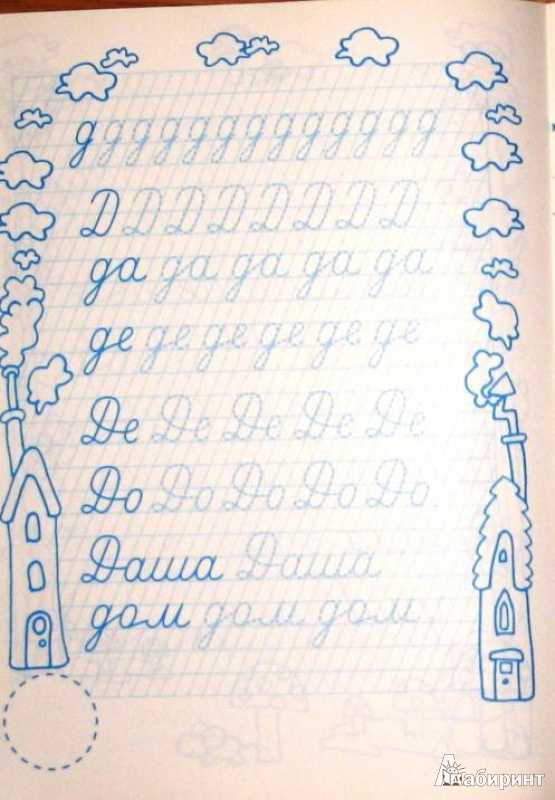 д д д д д д д д д д д д д
Д Д Д Д Д Д Д Д
да да да да да
де де де де де де
Де Де Де Де Де
До До До До До
Даша Даша
дом дом дом
Лабиринт